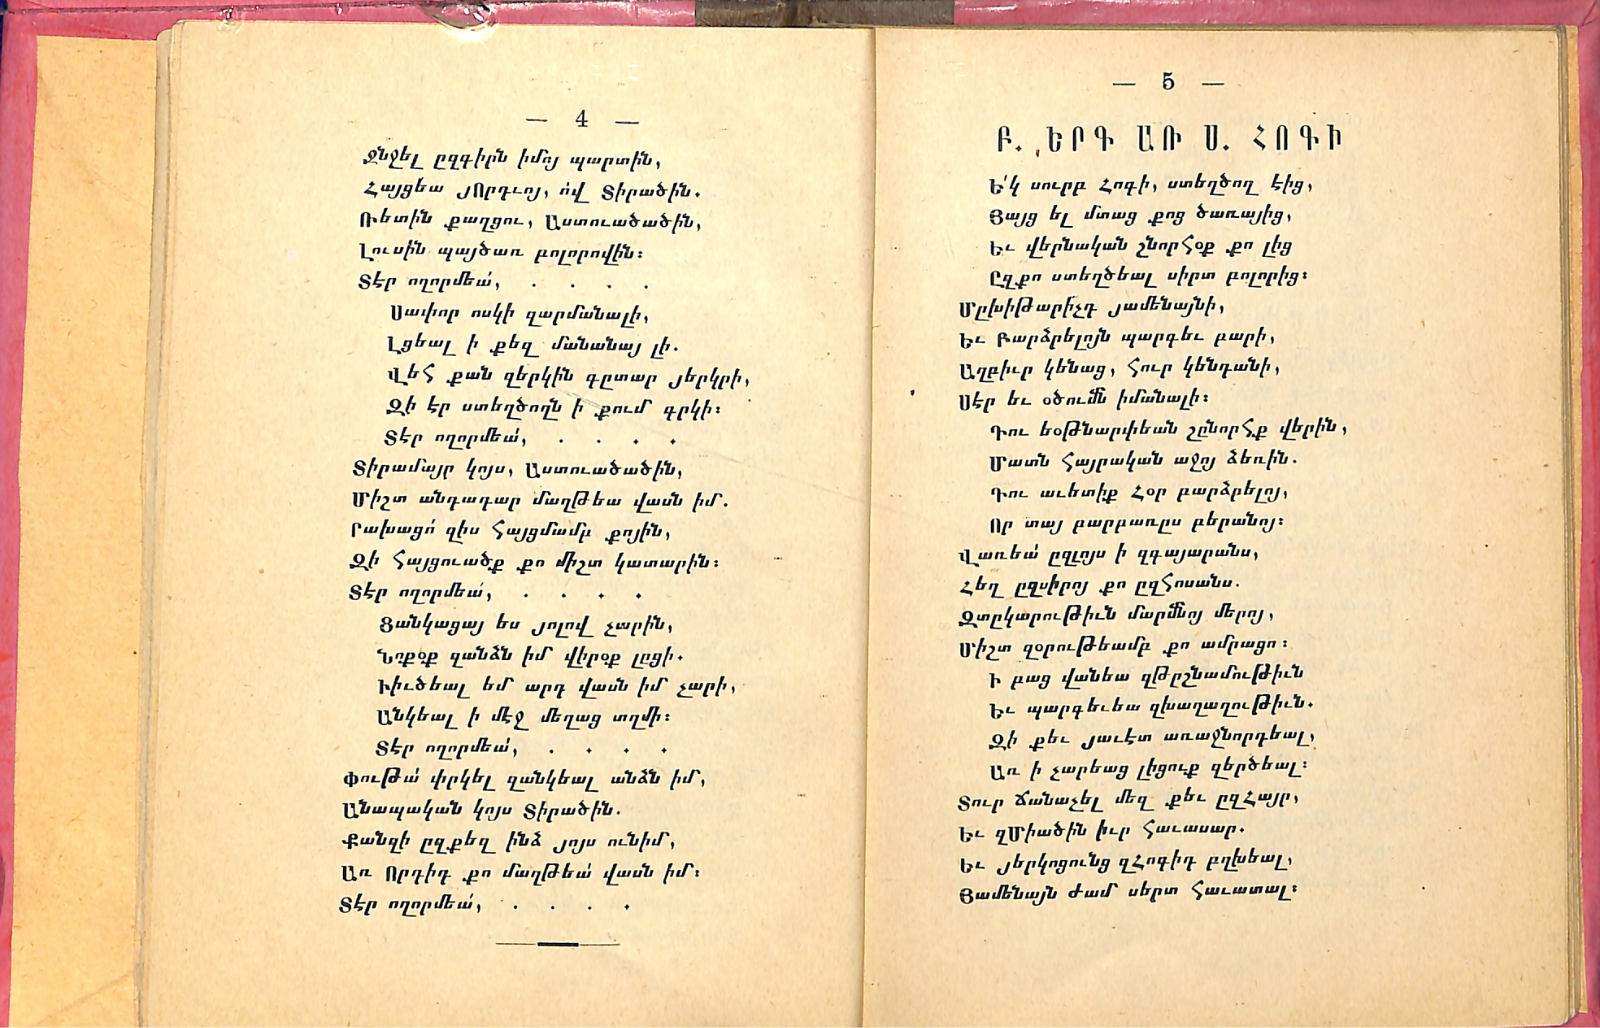 — 4 —
Ջնջել ըզգիրն իմոյ պարտին,
Հայցեա յՈրդւոյ, ո՛վ Տիրածին.
Ռետին քաղցու, Աստուածածին,
Լուսին պայծառ բոլորովին։
Տէր ողորմեա՛, . . . .
Սափոր ոսկի զարմանալի,
Լցեալ ի քեզ մանանայ լի.
Վեհ քան զերկին գըտար յերկրի,
Զի էր ստեղծողն ի քում գրկի։
Տէր ողորմեա՛, . . . .
Տիրամայր կոյս, Աստուածածին,
Միշտ անդադար մաղթեա վասն իմ.
Րախացո՛ զիս հայցմամբ քոյին,
Զի հայցուածք քո միշտ կատարին։
Տէր ողորմեա՛, . . . .
Ցանկացայ ես յոլով չարին,
Նոքօք զանձն իմ վիրօք լըցի.
Խիւծեալ եմ արդ վասն իմ չարի,
Անկեալ ի մէջ մեղաց տղմի։
Տէր ողորմեա՛, . . . .
Փութա՛ փրկել զանկեալ անձն իմ,
Անապական կոյս Տիրածին.
Քանզի ըզքեզ ինձ յոյս ունիմ,
Առ Որդիդ քո մաղթեա՛ վասն իմ։
Տէր ողորմեա՛, . . . .
— 5 —
Բ. ԵՐԳ ԱՌ Ս. ՀՈԳԻ
Ե՛կ սուրբ Հոգի, ստեղծող էից,
Յայց ել մտաց քոց ծառայից,
Եւ վերնական շնորհօք քո լից
Ըզքո ստեղծեալ սիրտ բոլորից։
Մըխիթարիչդ յամենայնի,
Եւ Բարձրելոյն պարգեւ բարի,
Աղբիւր կենաց, հուր կենդանի,
Սէր եւ օծումն իմանալի։
Դու եօթնարփեան շընորհք վերին,
Մատն հայրական աջոյ ձեռին.
Դու աւետիք Հօր բարձրելոյ,
Որ տայ բարբառըս բերանոյ։
Վառեա՛ ըզլոյս ի զգայարանս,
Հեղ ըզսիրոյ քո ըզհոսանս.
Զտըկարութիւն մարմնոյ մերոյ,
Միշտ զօրութեամբ քո ամրացո։
Ի բաց վանեա զթըշնամութիւն
Եւ պարգեւեա զխաղաղութիւն.
Զի քեւ յաւէտ առաջնորդեալ,
Առ ի չարեաց լիցուք զերծեալ։
Տուր ճանաչել մեզ քեւ ըզՀայր,
Եւ զՄիածին իւր հաւասար.
Եւ յերկոցունց զՀոգիդ բղխեալ,
Յամենայն ժամ սերտ հաւատալ։